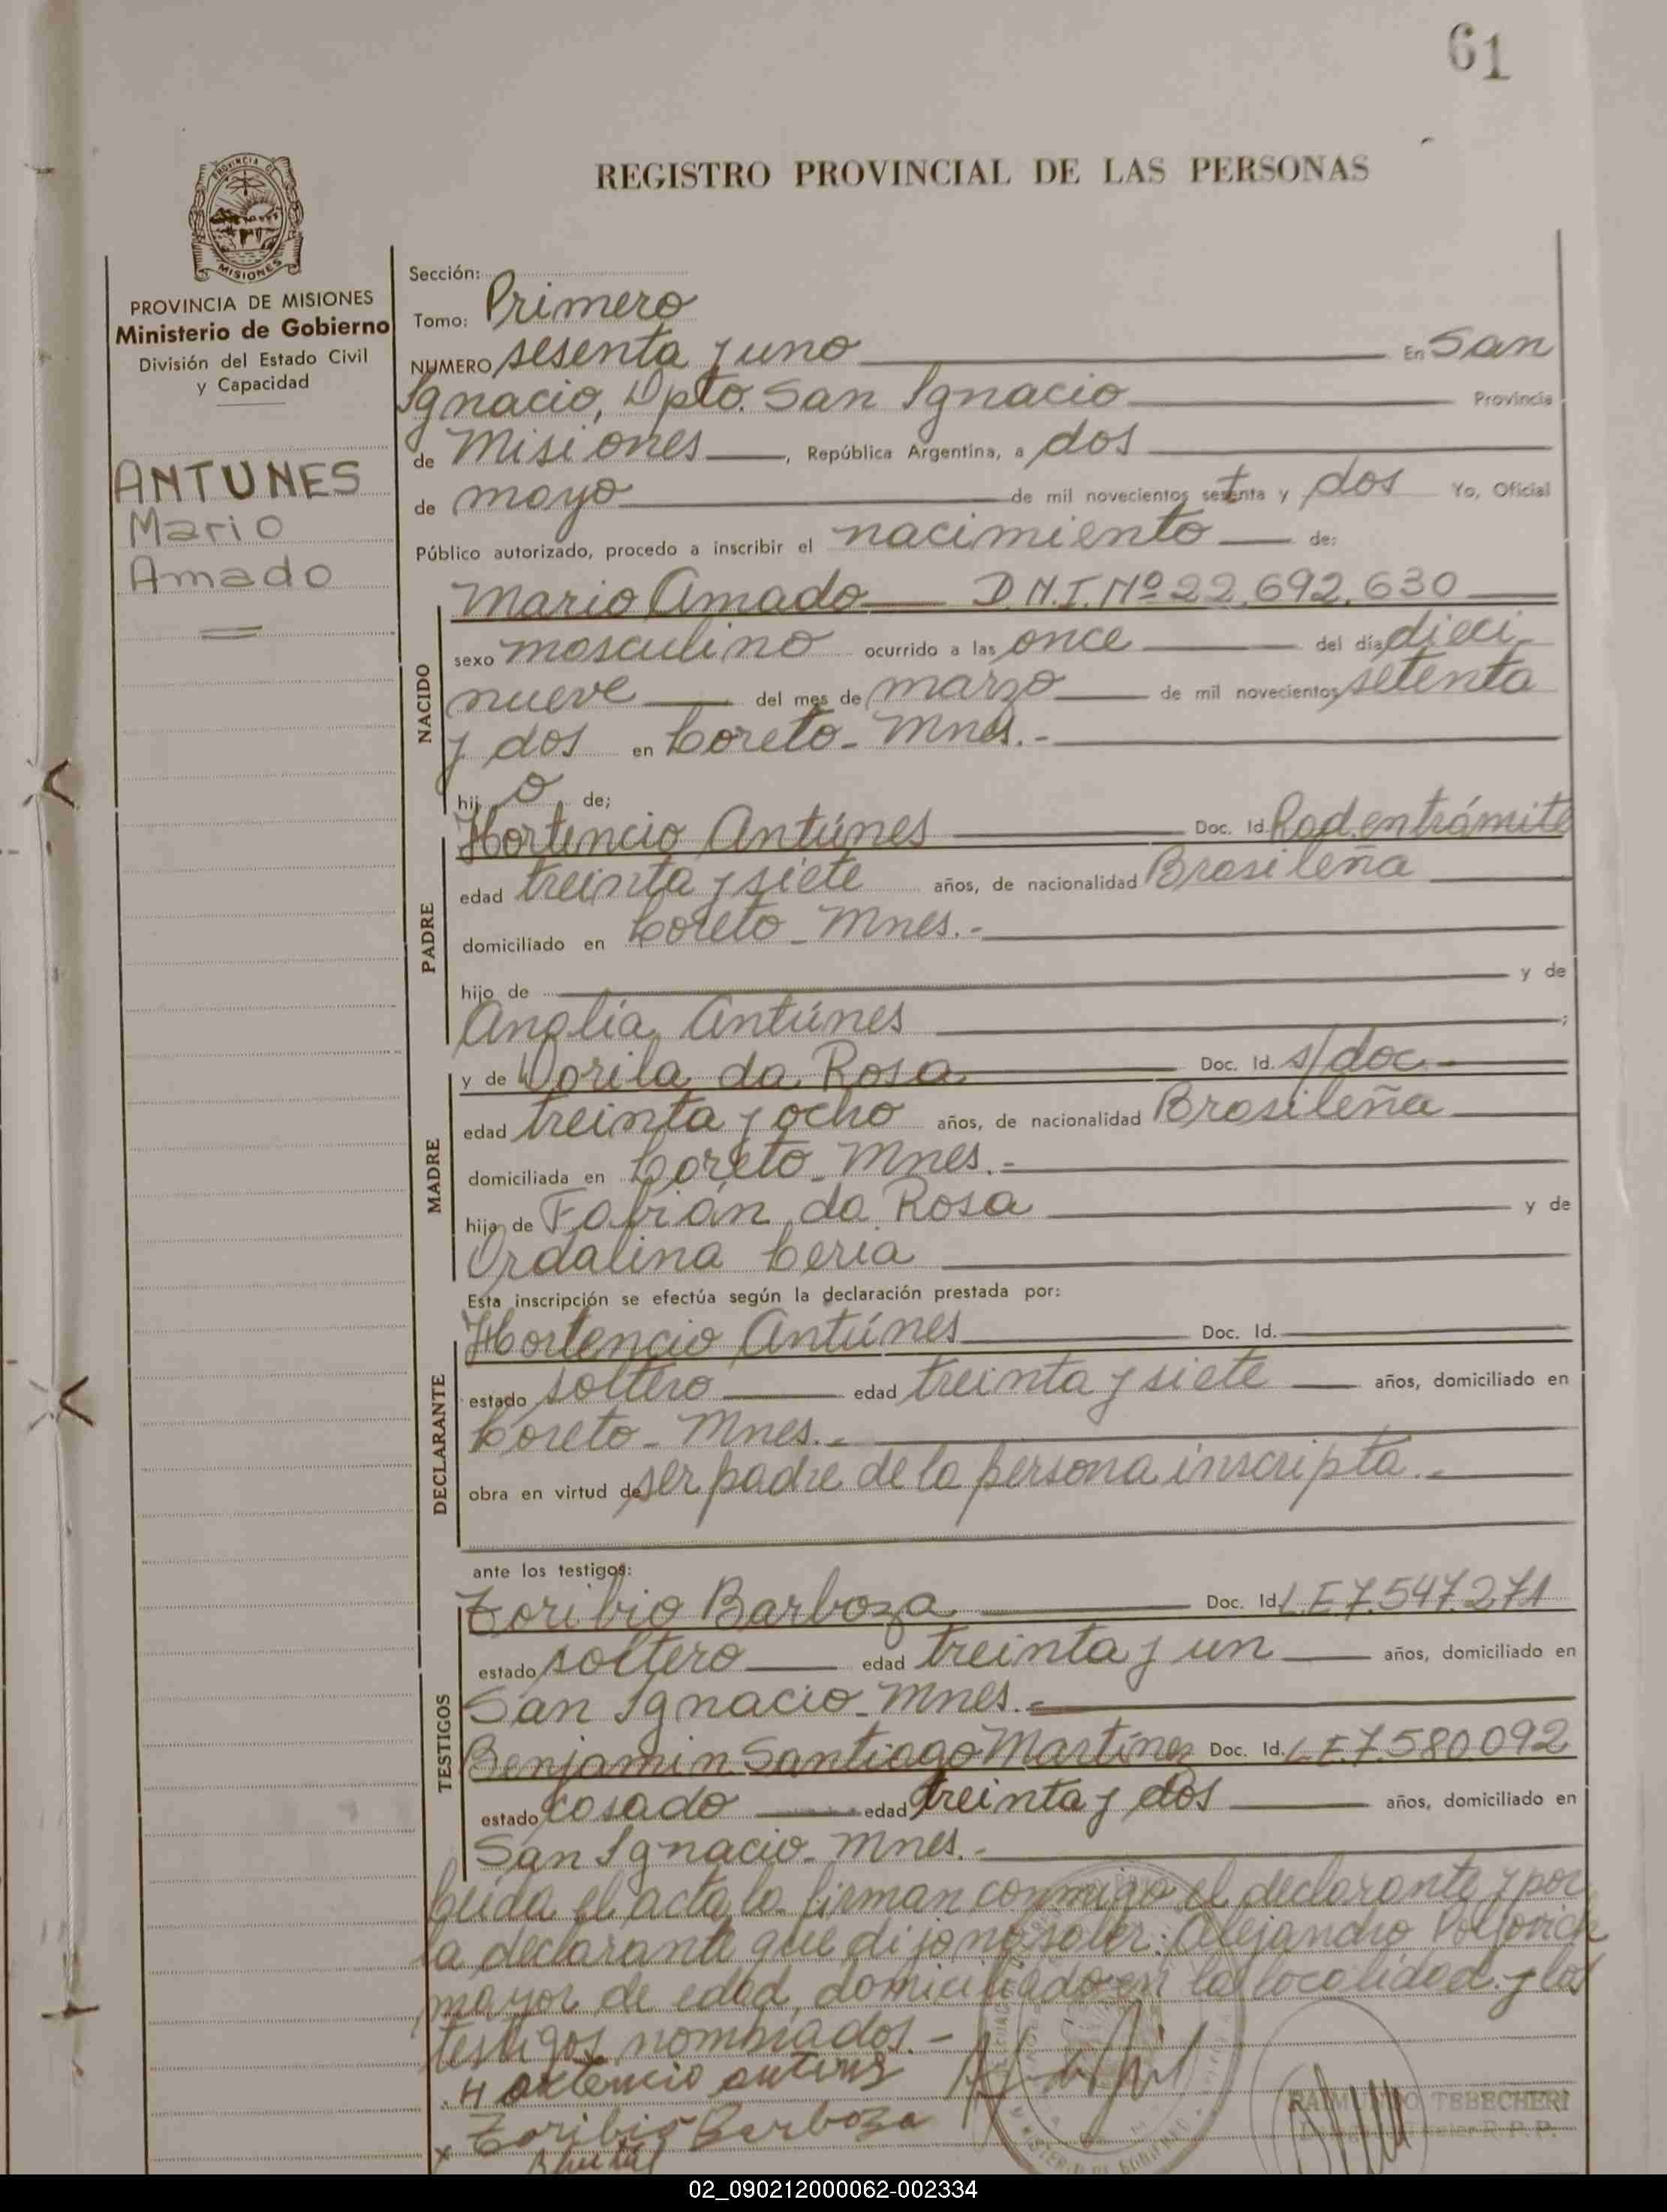 61
REGISTRO PROVINCIAL DE LAS PERSONAS
PROVINCIA DE
MISIONES
PROVINCIA DE MISIONES
Ministerio de Gobierno
División del Estado Civil
y Capacidad
ANTUNES
Mario
Amado
Sección:
Tomo: Primero
NUMERO sesenta y uno En San
Ignacio, Dpto. San Ignacio Provincia
de Misiones, República Argentina, a dos
de mayo de mil novecientos setenta y dos Yo, Oficial
Público autorizado, procedo a inscribir el nacimiento de:
NACIDO
Mario Amado D.N.I. Nº 22.692.630
sexo masculino ocurrido a las once del día dieci
nueve del mes de marzo de mil novecientos setenta
y dos en Loreto - Mnes. -
hij o de;
PADRE
Hortencio Antúnes Doc. Id. Rad. en trámite
edad treinta y siete años, de nacionalidad Brasileña
domiciliado en Loreto - Mnes. -
hijo de y de
Analía Antúnes ;
MADRE
y de Dorila da Rosa Doc. Id. s/doc -
edad treinta y ocho años, de nacionalidad Brasileña
domiciliada en Loreto - Mnes. -
hija de Fabián da Rosa y de
Ordalina Leria
Esta inscripción se efectúa según la declaración prestada por:
DECLARANTE
Hortencio Antúnes Doc. Id.
estado soltero edad treinta y siete años, domiciliado en
Loreto - Mnes. -
obra en virtud de ser padre de la persona inscripta. -
ante los testigos:
TESTIGOS
Toribio Barboza Doc. Id. L.E 7.547.271
estado soltero edad treinta y un años, domiciliado en
San Ignacio - Mnes. -
Benjamin Santiago Martínez Doc. Id. L.E. 7.580.092
estado casado edad treinta y dos años, domiciliado en
San Ignacio - Mnes. -
Leída el acta, la firman conmigo el declarante y por
la declarante que dijo no saber: Alejandro
mayor de edad, domiciliado en la localidad y los
testigos nombrados. -
Hortencio antuns
Toribio Barboza
RAIMUNDO TEBECHERI
02_090212000062-002334